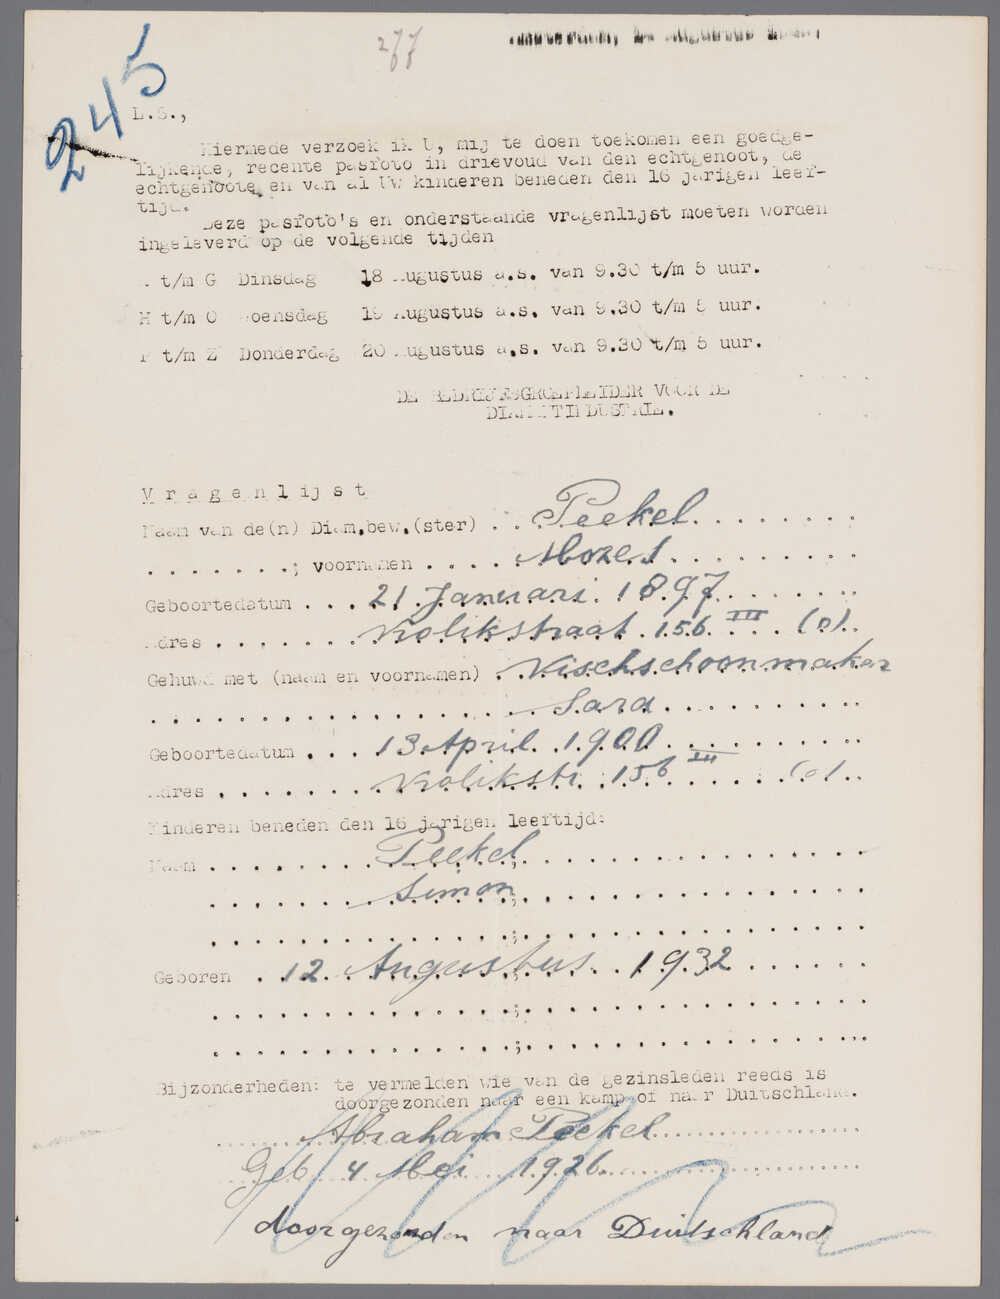 277
245
L.S.,
Hiermede verzoek ik U, mij te doen toekomen een goedge-
lijkende, recente pasfoto in drievoud van den echtgenoot, de
echtgenoote en van al Uw kinderen beneden den 16 jarigen leef-
tijd.
Deze pasfoto's en onderstaande vragenlijst moeten worden
ingeleverd op de volgende tijden
t/m G Dinsdag 18 Augustus a.s. van 9.30 t/m 5 uur.
H t/m O Woensdag 19 Augustus a.s. van 9.30 t/m 5 uur.
P t/m Z Donderdag 20 Augustus a.s. van 9.30 t/m 5 uur.
DE BEDRIJFSGROEPLEIDER VOOR DE
DIAMANTINDUSTRIE.
Vragenlijst
Naam van de(n) Diam.bew.(ster) . . Peekel . . . . . . . .
. . . . . . . ; voornamen . . . . Mozes . . . . . . . . .
Geboortedatum . . . 21 Januari 1897 . . . . . . .
Adres . . . . . . . Kolikstraat 156 III . . . (o) . .
Gehuwd met (naam en voornamen) . Vischschoonmaker
. . . . . . . . . . . . . . . . . Sara . . . . . . . . . .
Geboortedatum . . . 13 April 1900 . . . . . . . . .
Adres . . . . . . . Kolikstr. 156 III . . . . . (o) . .
Kinderen beneden den 16 jarigen leeftijd:
Naam . . . . . . . . Peekel ; . . . . . . . . . . . . . . .
. . . . . . . . Simon ; . . . . . . . . . . . . . . .
. . . . . . . . . . . . . . ; . . . . . . . . . . . . . . .
Geboren . 12 Augustus 1932 . . . . . . .
. . . . . . . . . . . . . . ; . . . . . . . . . . . . . . .
. . . . . . . . . . . . . . ; . . . . . . . . . . . . . . .
Bijzonderheden: te vermelden wie van de gezinsleden reeds is
doorgezonden naar een kamp of naar Duitschland.
Abraham Peekel
Geb 4 Mei 1926
doorgezonden naar Duitschland